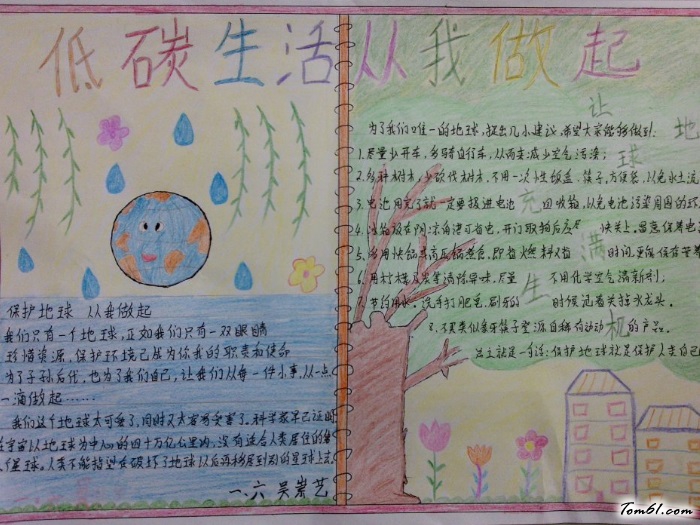 低碳生活从我做起
保护地球 从我做起
我们只有一个地球,正如我们只有一双眼睛
环境资源,保护环境已成为你我的职责和使命
为了子孙后代,也为了我们自己,让我们从每一件小事,从一点
一滴做起……
我们这个地球太可爱了,同时又太容易受害了。科学家已证明
在宇宙以地球为中心的四十万亿公里内,没有适合人类居住的第
二个星球。人类不能指望在破坏了地球以后再移居到别的星球上去
一.六 吴崇艺
让地球充满生机
为了我们唯一的地球,提出几小建议,希望大家能够做到:
1.尽量少开车,多骑自行车,从而来减少空气污染;
2.多种树木,少砍伐树木,不用一次性饭盒、筷子,方便袋,以免水土流
3.电池用完了就一定要投进电池回收箱,以免电池污染周围的环
4.冰箱放在阴凉角落可省电,开门取拍后应 快关上,温克保寿也
5.多用快锅高压锅煮食,即省燃料又省 时间,更能保存营养
6.用柠檬 清除异味,尽量 不用化学空气清新剂,
7.节约用水。洗手打肥皂,刷牙的 时候记着关掉水龙头。
8.不 的产品。
总之就是一句话:保护地球就是保护人类自己
Tom61.com